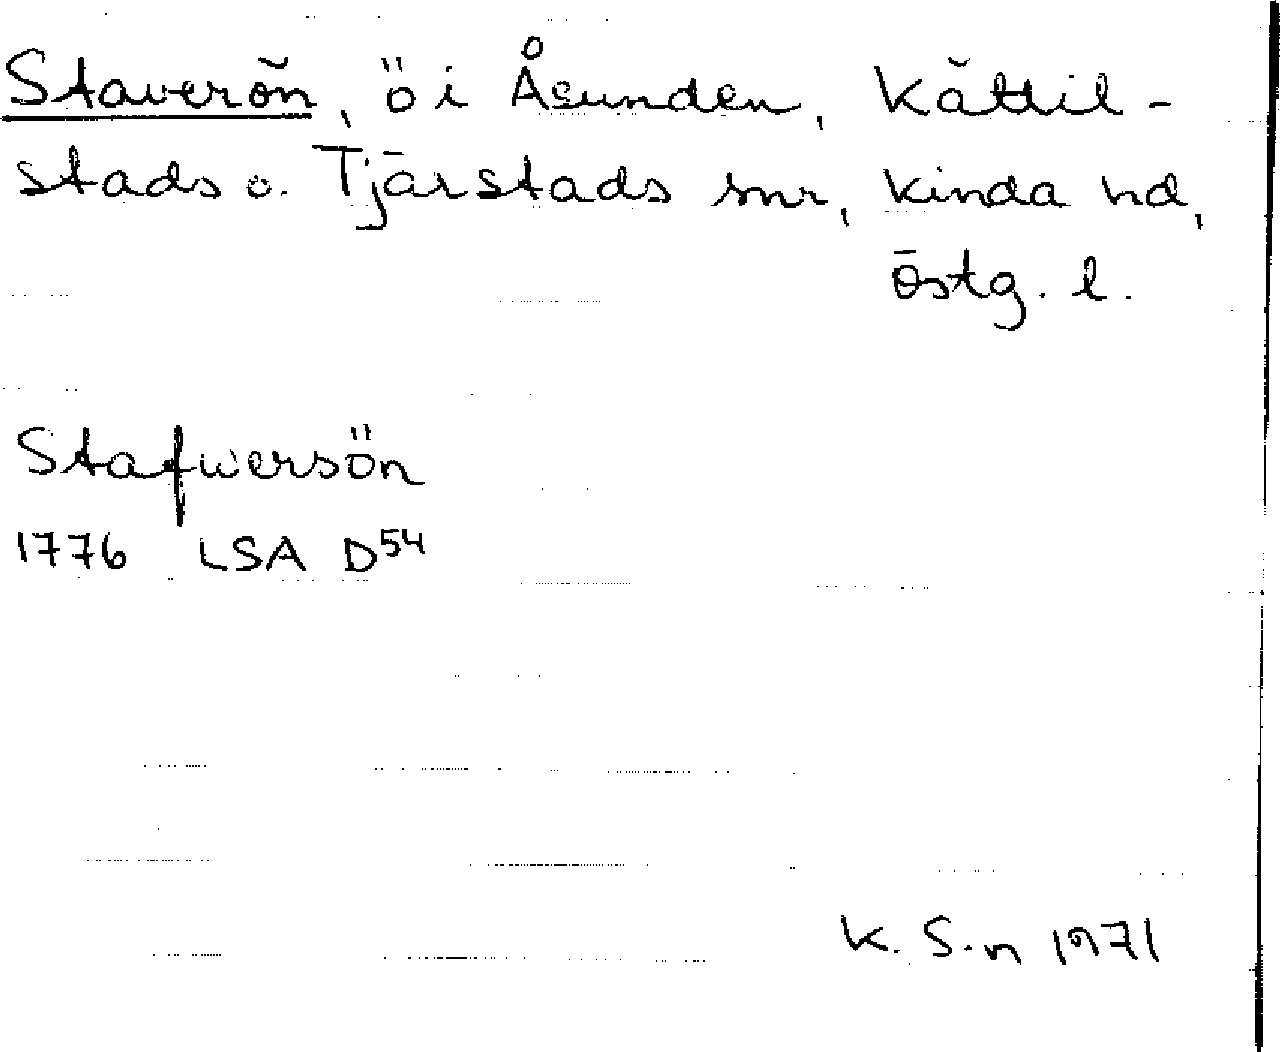 Staverön, ö i Åsunden, Kättil-
stads o. Tjärstads snr, Kinda hd,
Östg. l.
Stafwersön
1776 LSA D54
K. S-n 1971